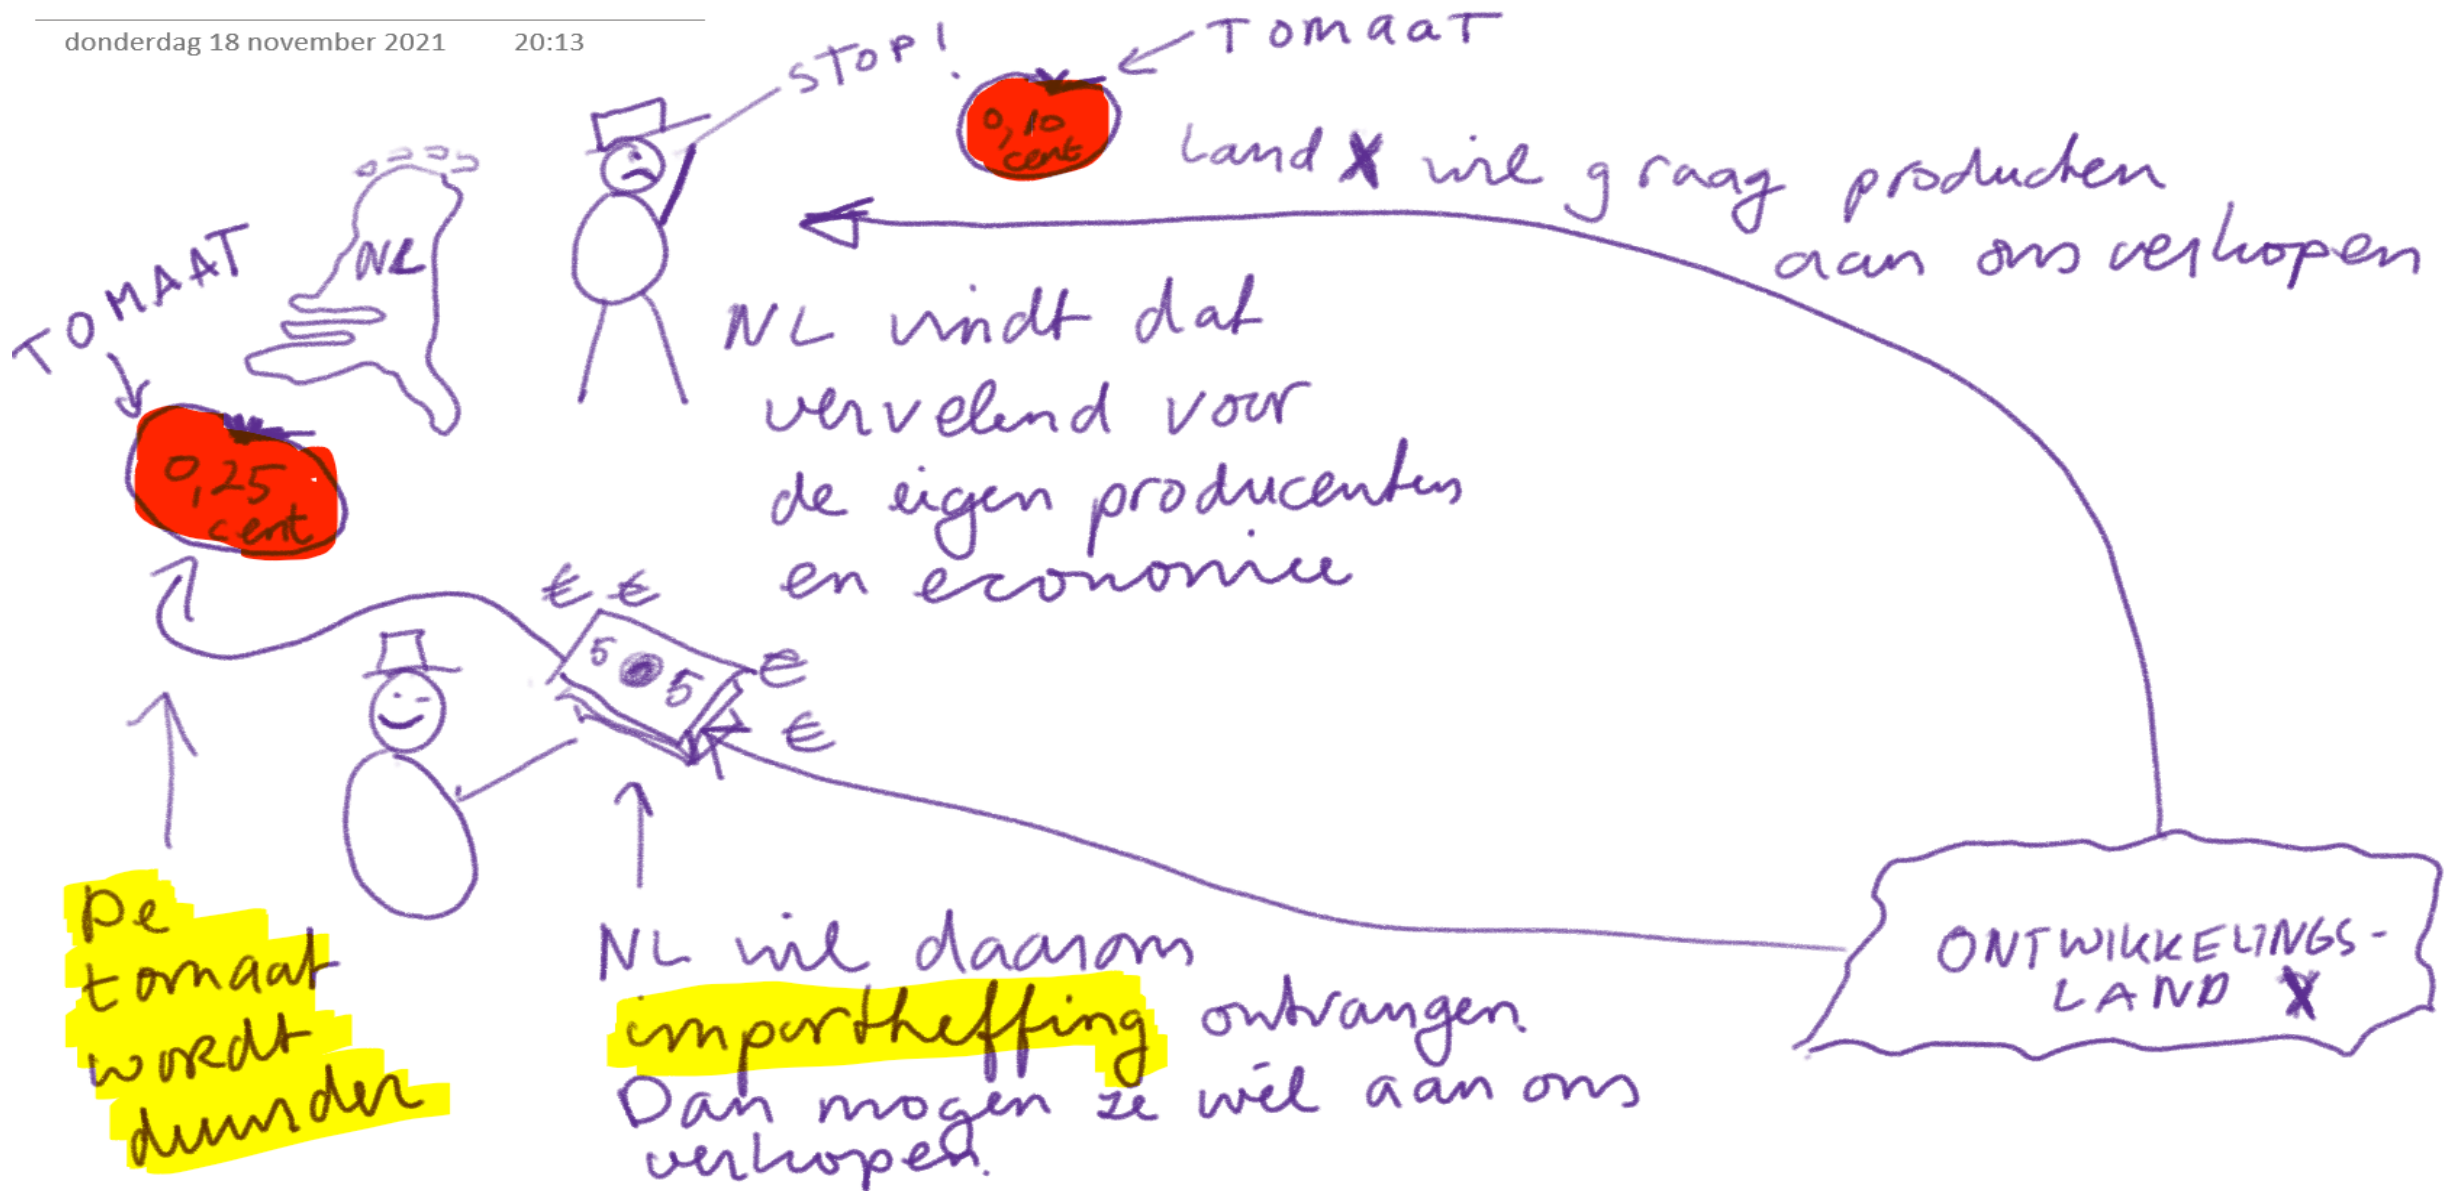 donderdag 18 november 2021 20:13
STOP!
TOMAAT
0,10
cent
Land X wil graag producten
aan ons verkopen
NL
TOMAAT
0,25
cent
NL vindt dat
vervelend voor
de eigen producenten
en economiee
€ €
5 5
€
€
De
tomaat
wordt
duurder
NL wil daarom
importheffing ontvangen.
Dan mogen ze wél aan ons
verkopen.
ONTWIKKELINGS-
LAND X